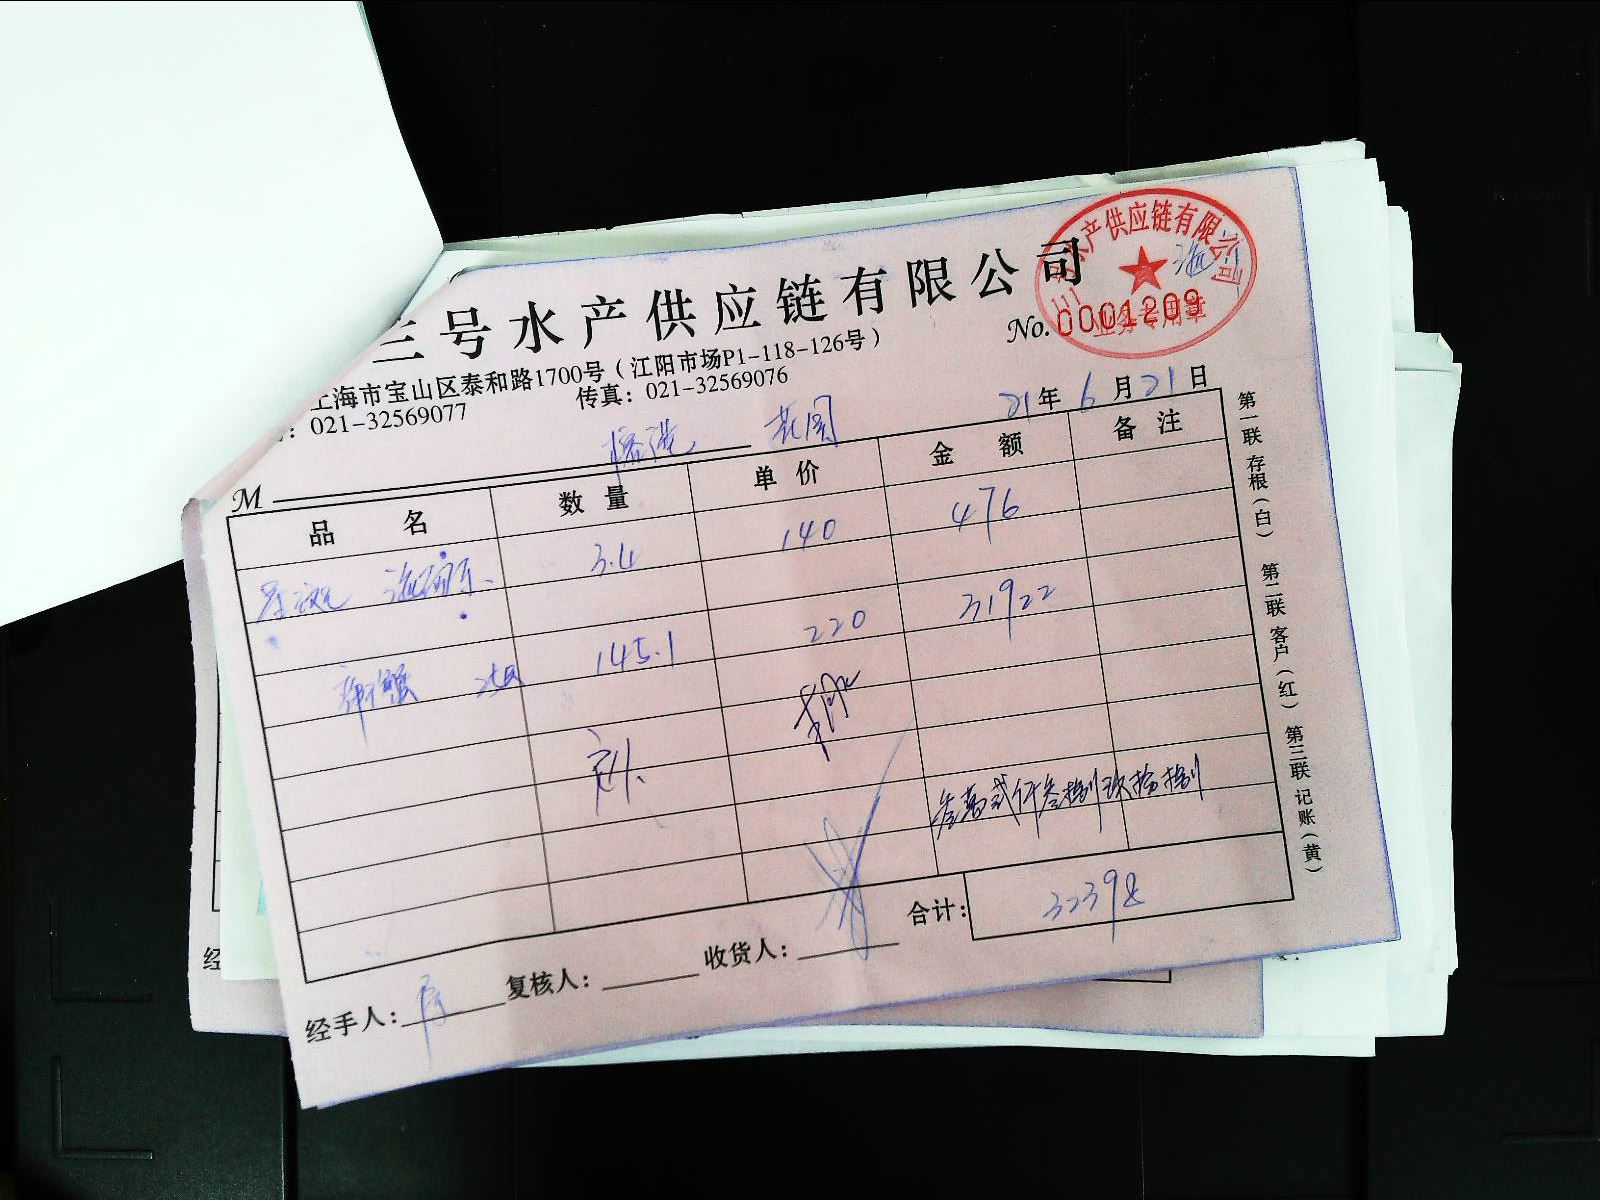 三号水产供应链有限公司
水产供应链有限公司
业务专用章
No. 0001209
上海市宝山区泰和路1700号（江阳市场P1-118-126号）
：021-32569077 传真：021-32569076
21年6月21日
M 花园
品名 数量 单价 金额 备注
3.4 140 476
145.1 220 31922
叁万贰仟叁佰玖拾捌
合计：32398
经手人： 复核人： 收货人：
第一联 存根（白） 第二联 客户（红） 第三联 记账（黄）
经